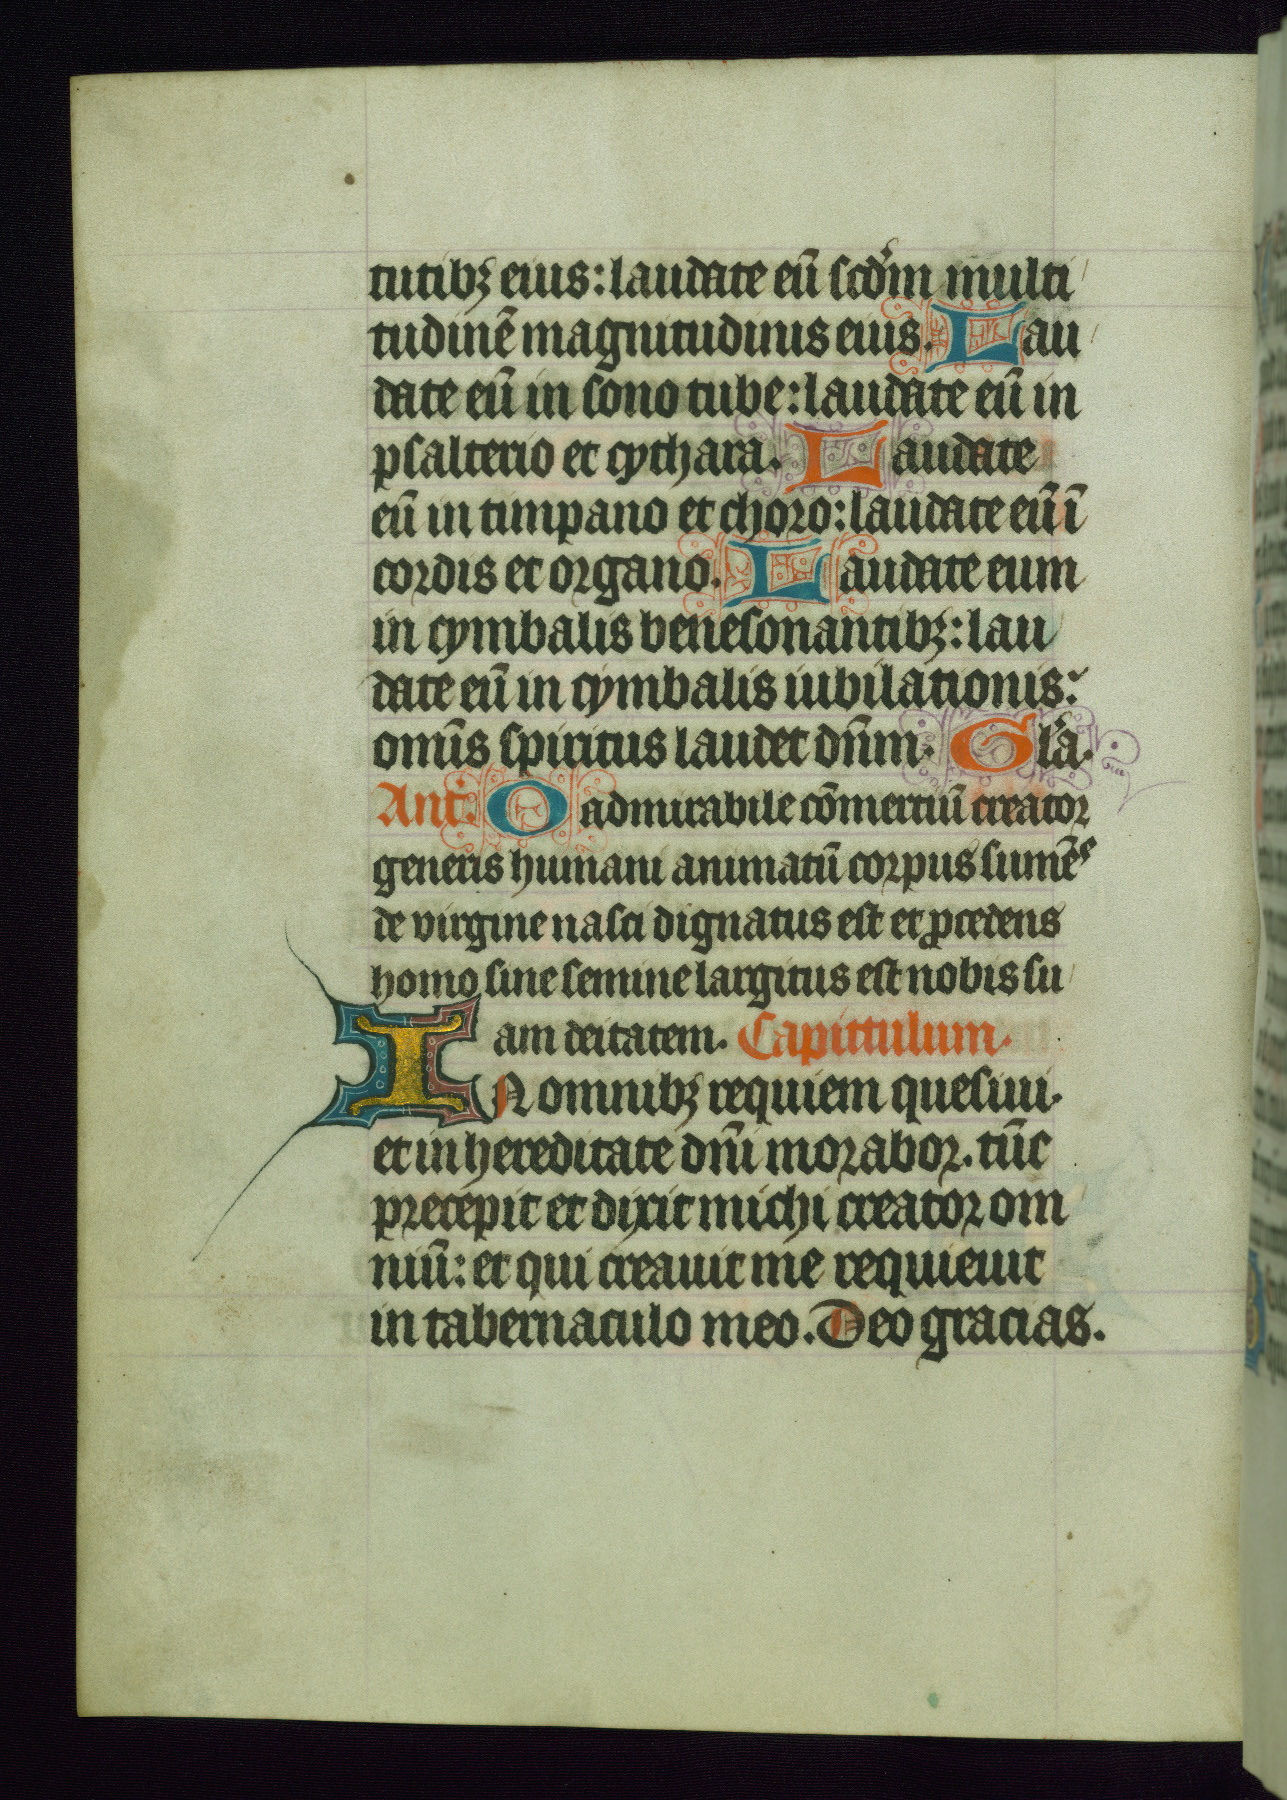 tutibꝫ eius: laudate eū scďm multi
tudinē magnitudinis eius. Lau
date eū in sono tube: laudate eū in
psalterio et cythara. Laudate
eū in timpano et choro: laudate eū ī
cordis et organo. Laudate eum
in cymbalis benesonantibꝫ: lau
date eū in cymbalis iubilationis:
omīs spiritus laudet dn̄m. Gl̄a.
Ant. O admirabile cōmertiū creator
generis humani animatū corpus sumēs
de virgine nasci dignatus est et ꝓcedens
homo sine semine largitus est nobis su
am deitatem. Capittulum.
IN omnibꝫ requiem quesiui.
et in hereditate dn̄i morabor. tūc
precepit et dixit michi creator om
niū: et qui creauit me requieuit
in tabernaculo meo. Deo gracias.